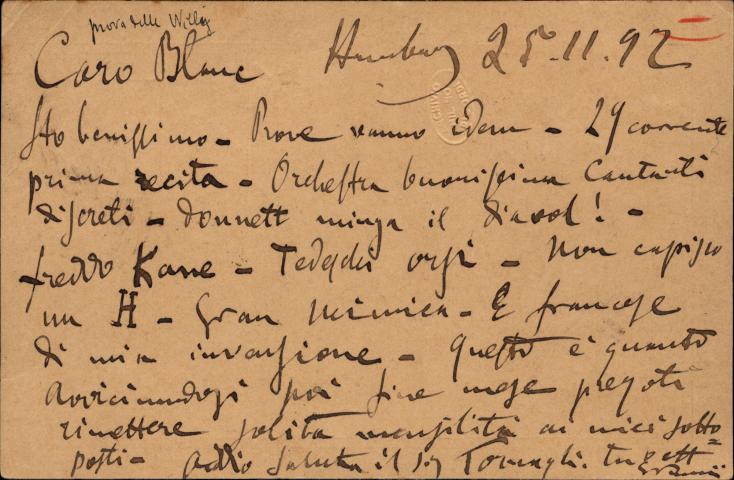 prova delle Willy
Caro Blanc Hamburg 25.11.92
Sto benissimo – Prove vanno idem – 29 corrente
prima recita – Orchestra buonissima Cantanti
discreti – donnett minga il diavol! –
freddo Kane – Tedeschi orsi – Non capisco
un H – Gran mimica – E francese
di mia invenzione – Questo è quanto
avvicinandosi poi fine mese pregoti
rimettere solita mensilità ai miei sotto=
posti – Addio Saluta il Sig Tornaghi. tuo